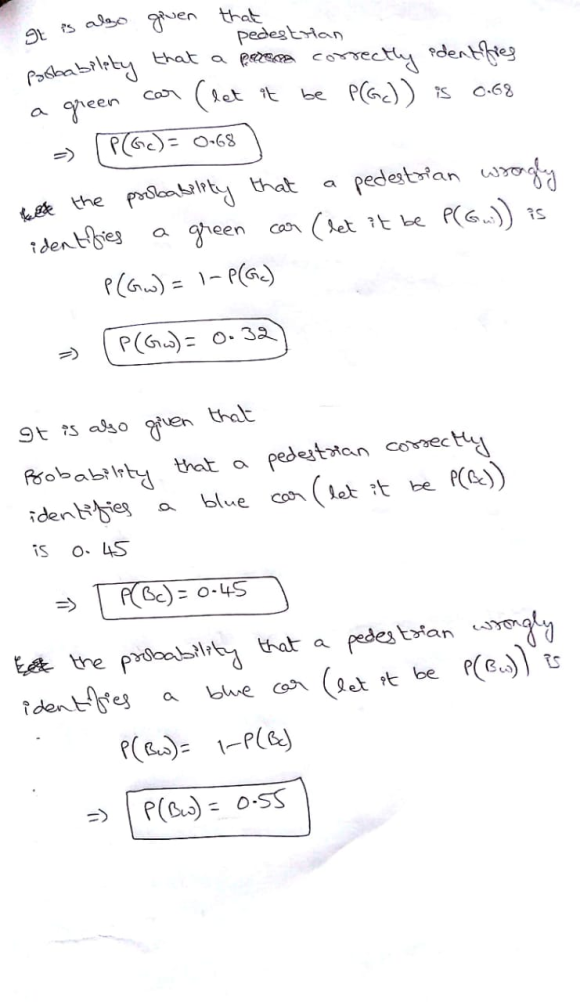 It is also given that
pedestrian
probability that a correctly identifies
a green car (let it be P(Gc)) is 0.68
⇒ P(Gc) = 0.68
the probability that a pedestrian wrongly
identifies a green car (let it be P(Gw)) is
P(Gw) = 1-P(Gc)
⇒ P(Gw) = 0.32
It is also given that
Probability that a pedestrian correctly
identifies a blue car (let it be P(Bc))
is 0.45
⇒ P(Bc) = 0.45
the probability that a pedestrian wrongly
identifies a blue car (let it be P(Bw)) is
P(Bw) = 1-P(Bc)
⇒ P(Bw) = 0.55